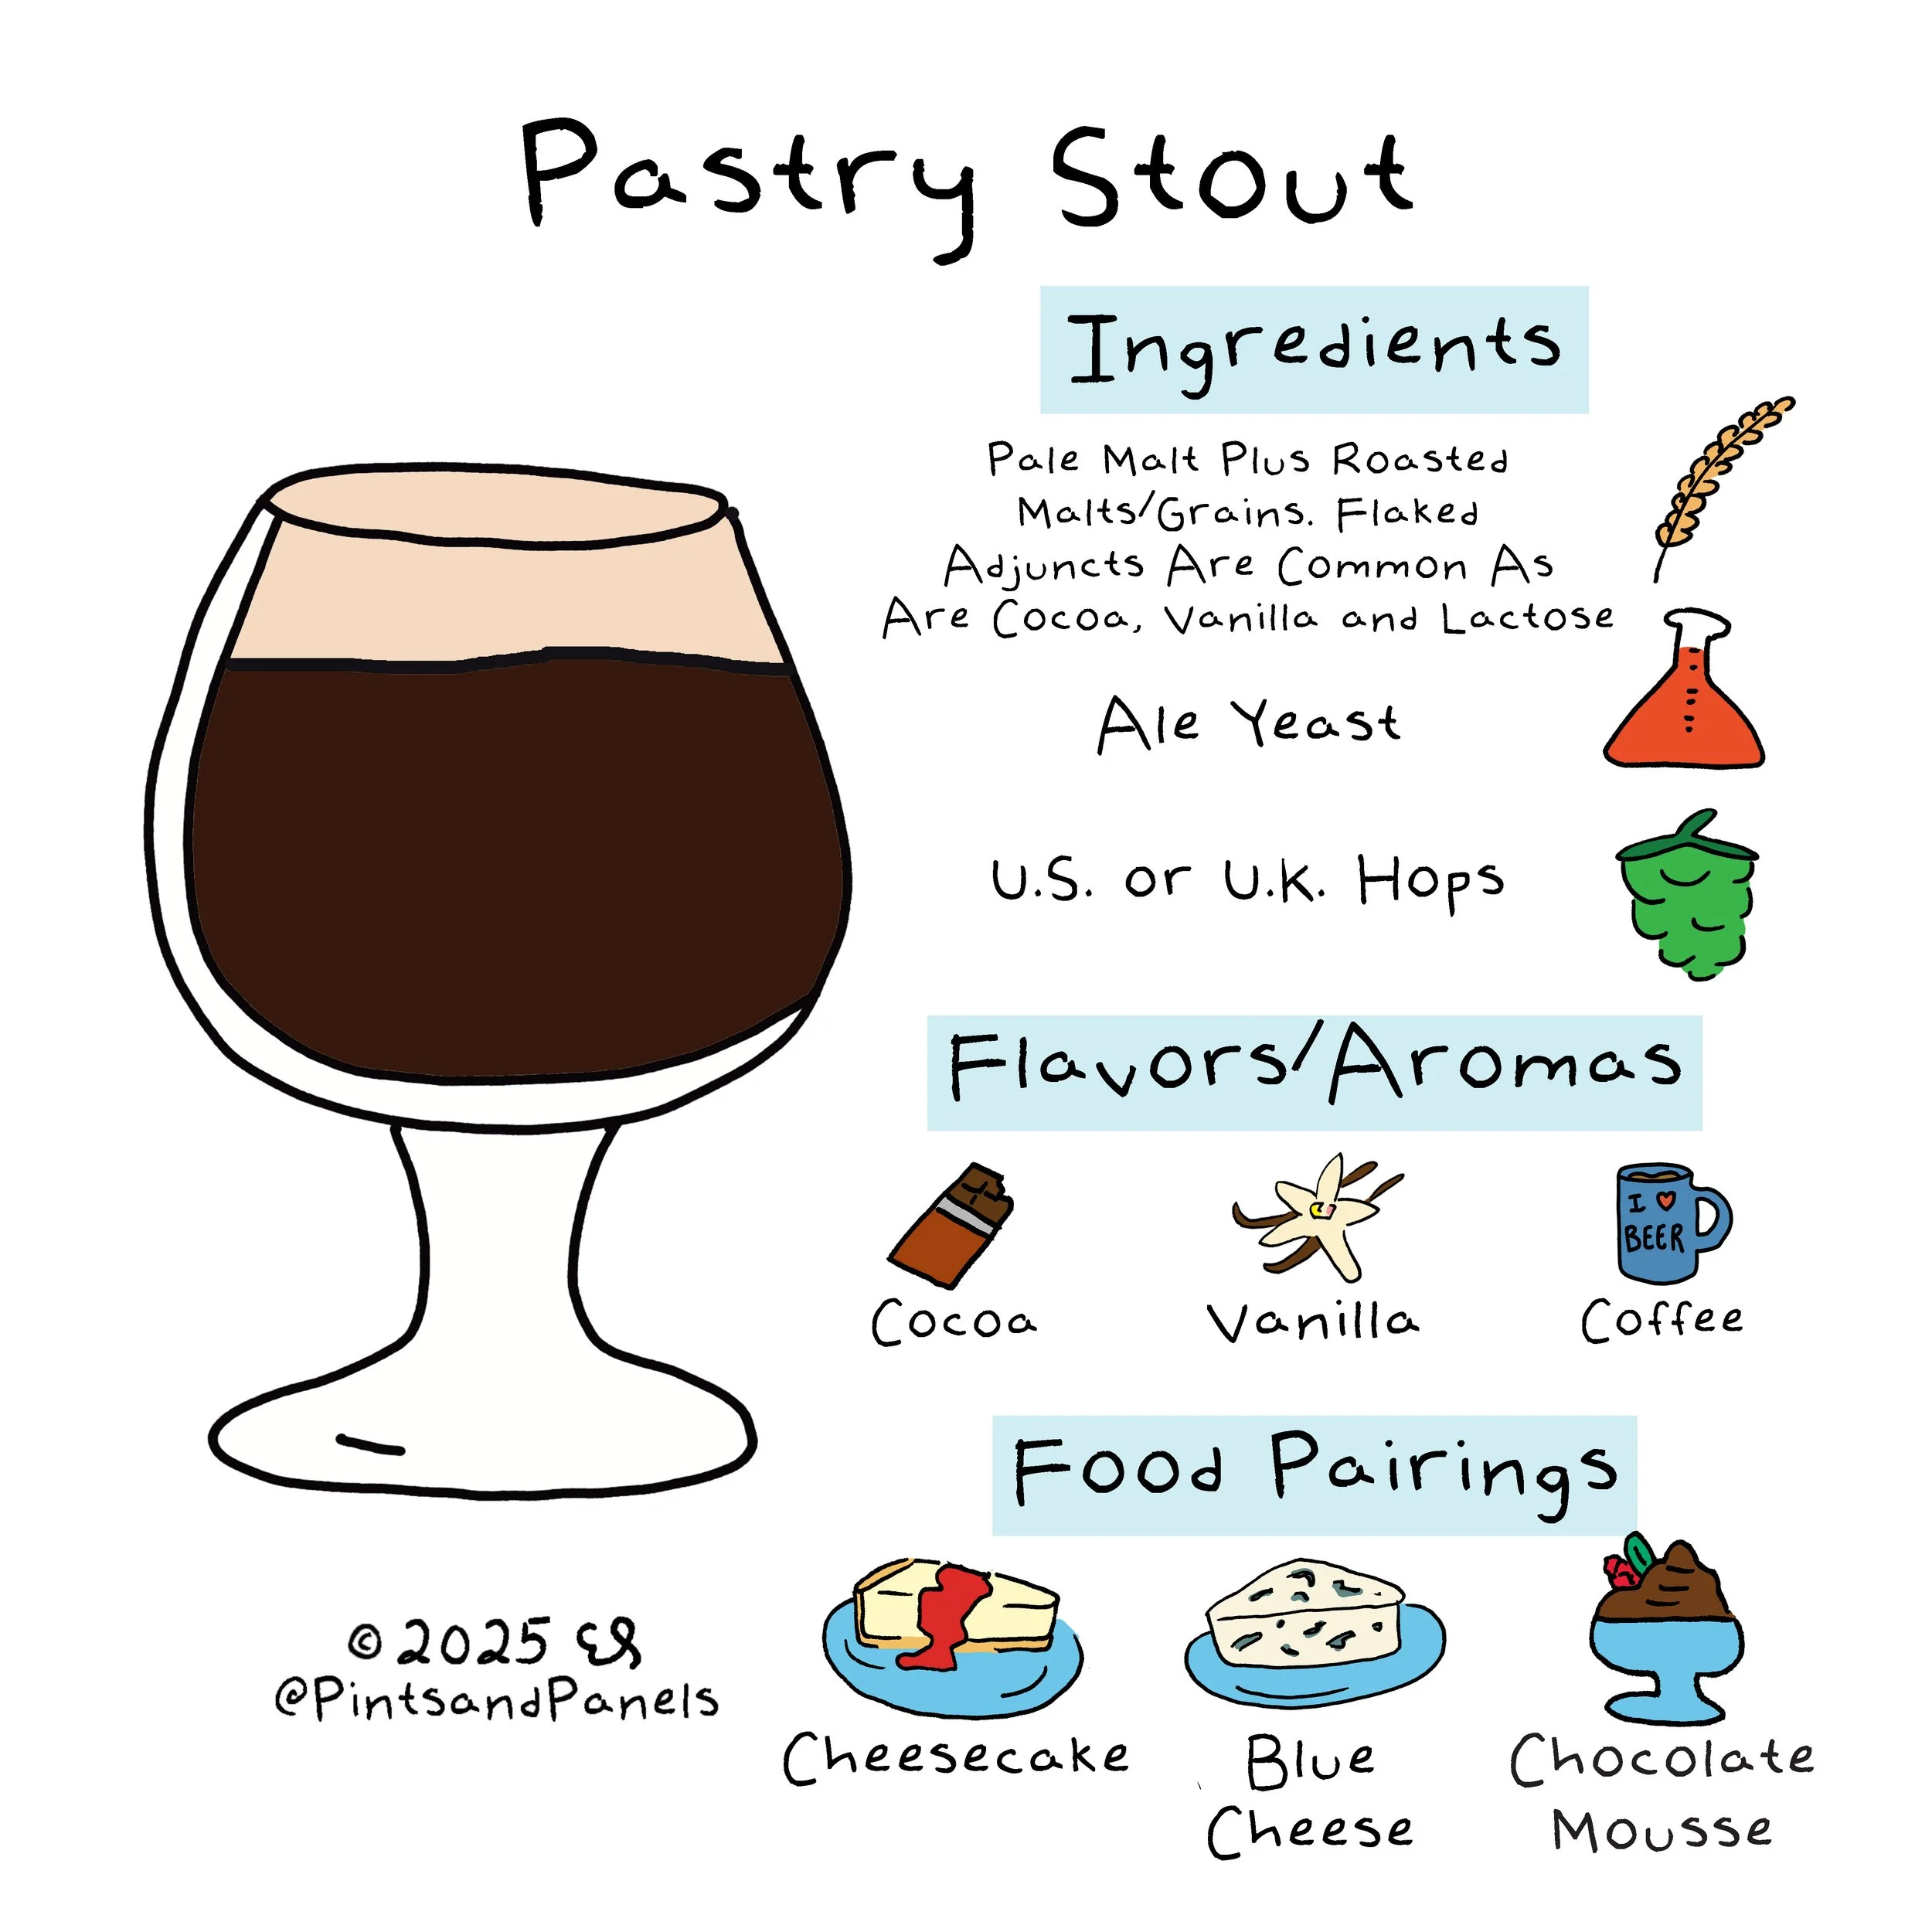 Pastry Stout
Ingredients
Pale Malt Plus Roasted
Malts/Grains. Flaked
Adjuncts Are Common As
Are Cocoa, Vanilla and Lactose
Ale Yeast
U.S. or U.K. Hops
Flavors/Aromas
I ♥
BEER
Cocoa
Vanilla
Coffee
Food Pairings
Cheesecake
Blue
Cheese
Chocolate
Mousse
©2025
@PintsandPanels